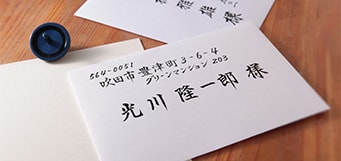 564-0051
吹田市豊津町3-6-4
グリーンマンション 203
光川 隆一郎 様
様